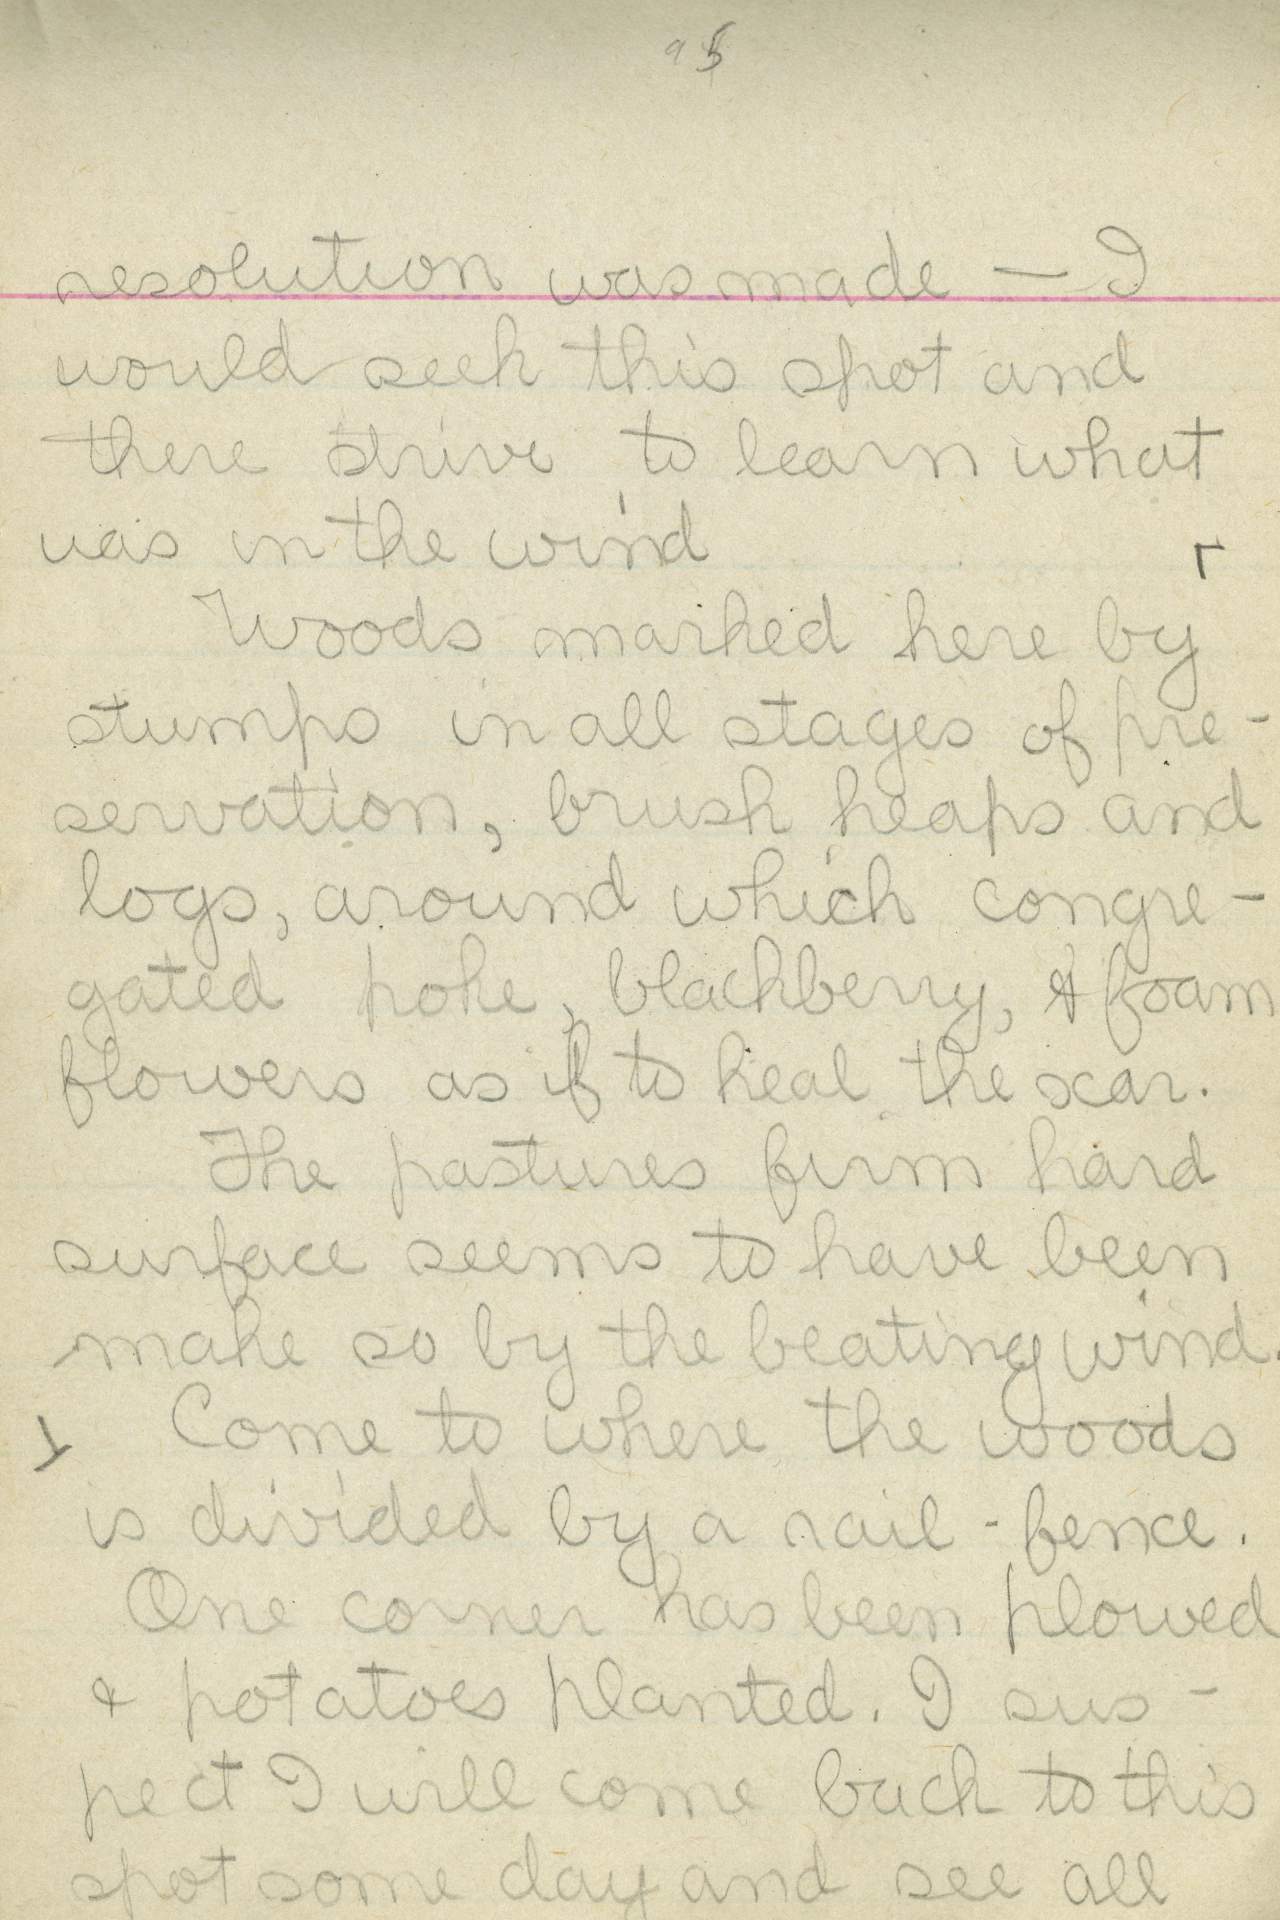 95
resolution was made — I
would seek this spot and
there strive to learn what
was in the wind
Woods marked here by
stumps in all stages of pre-
servation, brush heaps and
logs, around which congre-
gated poke, blackberry, & foam
flowers as if to heal the scar.
The pastures firm hard
surface seems to have been
make so by the beating wind.
Come to where the woods
is divided by a rail-fence.
One corner has been plowed
& potatoes planted. I sus-
pect I will come back to this
spot some day and see all